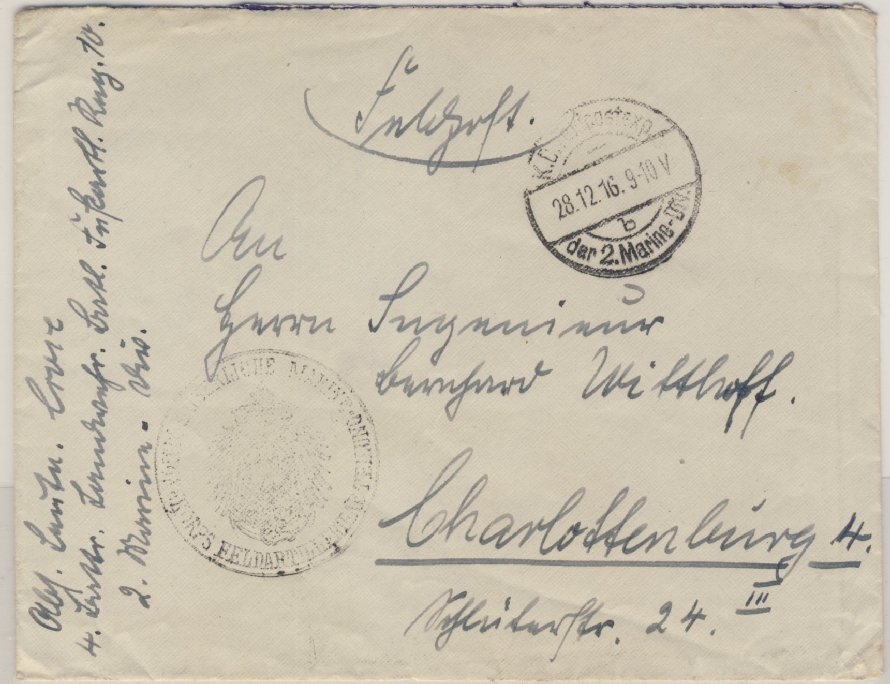 Feldpost.
K.D. Feldpostexp.
28.12.16. 9-10 V
b
der 2. Marine-Div.
An
Herrn Ingenieur
Bernhard Witthoff.
Charlottenburg 4.
Schlüterstr. 24. III
KAISERLICHE MARINE
KORPS FELDARTILLERIE
Abs. Leutn.
4. Battr. Landwehr. Batl. Fußartl. Reg. 10.
2. Marine - Div.